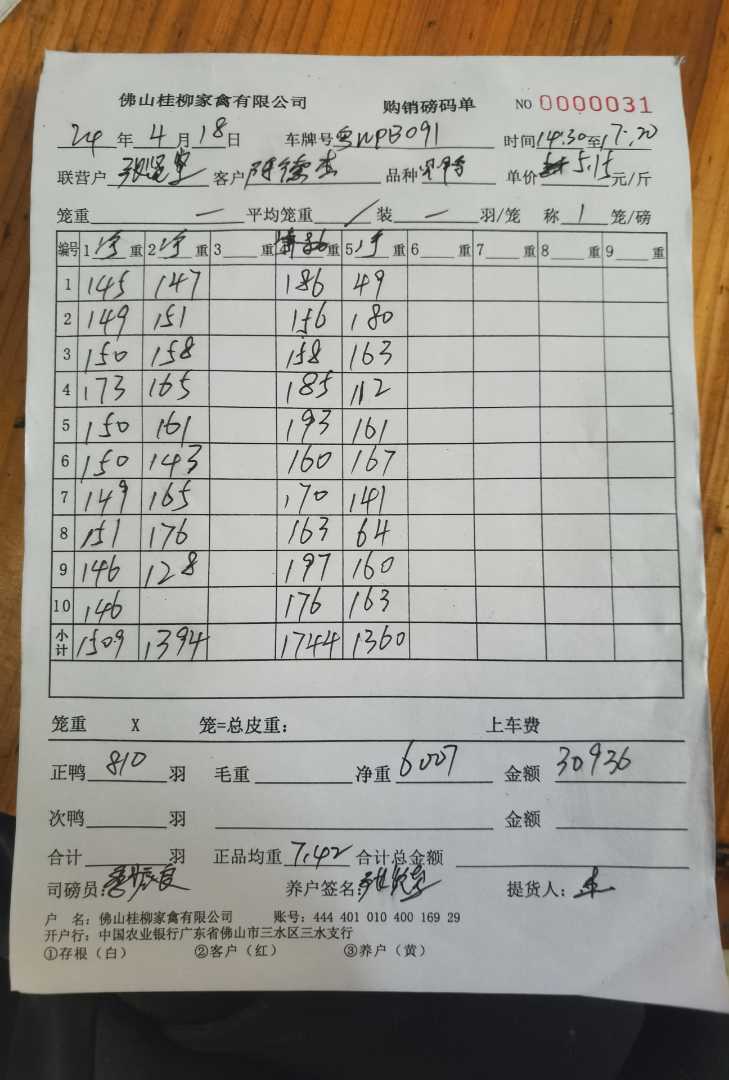 佛山桂柳家禽有限公司 购销磅码单 NO 0000031
24年4月18日 车牌号粤WPB091 时间14:30至17:20
联营户 客户 品种 单价5.15元/斤
笼重 一 平均笼重 / 装 一 羽/笼 称 1 笼/磅
编号 1净重 2净重 3 重 重 5净重 6 重 7 重 8 重 9 重
1 145 147 186 49
2 149 151 156 180
3 150 158 158 163
4 173 165 185 112
5 150 161 193 161
6 150 143 160 167
7 149 165 170 141
8 151 176 163 64
9 146 128 197 160
10 146 176 163
小计 1509 1394 1744 1360
笼重 X 笼=总皮重: 上车费
正鸭 810 羽 毛重 净重 6007 金额 30936
次鸭 羽 金额
合计 羽 正品均重 7.42 合计总金额
司磅员: 养户签名: 提货人:
户 名: 佛山桂柳家禽有限公司 账号: 444 401 010 400 169 29
开户行: 中国农业银行广东省佛山市三水区三水支行
①存根（白） ②客户（红） ③养户（黄）